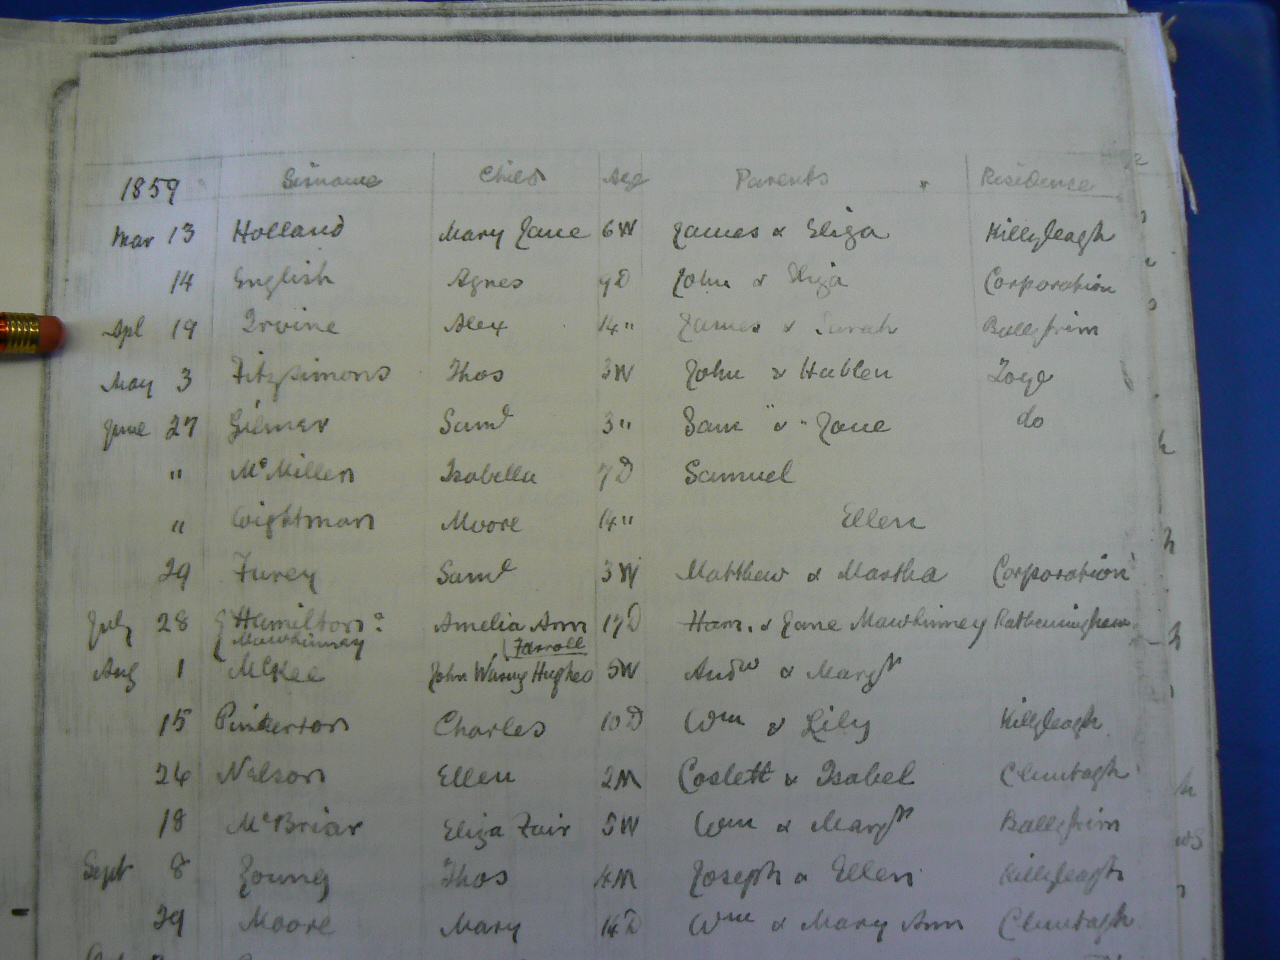 1859 Sirname Child Age Parents Residence
Mar 13 Holland Mary Jane 6W James & Eliza Killyleagh
14 English Agnes 9D John & Eliza Corporation
Apl 19 Irvine Alex 14" James & Sarah Ballytrim
May 3 Fitzsimons Thos 3W John & Toye
June 27 Gilmer Saml 3" Sam " & " Jane do
" McMillen Isabella 7D Samuel
" Wightman Moore 14" Ellen
29 Furey Saml 3W Matthew & Martha Corporation
July 28 { Hamilton? Amelia Ann 17D Ham. & Jane Mawhinney Rathcuningham
Mawhinney (Farroll
Aug 1 McKee John Waring Hughes 5W Andw & Margt
15 Pinkerton Charles 10D Wm & Lily Killyleagh
24 Nelson Ellen 2M Coslett & Isabel Cluntagh
18 McBriar Eliza Fair 5W Wm & Margt Ballytrim
Sept 8 Young Thos 4M Joseph & Ellen Killyleagh
29 Moore Mary 14D Wm & Mary Ann Cluntagh